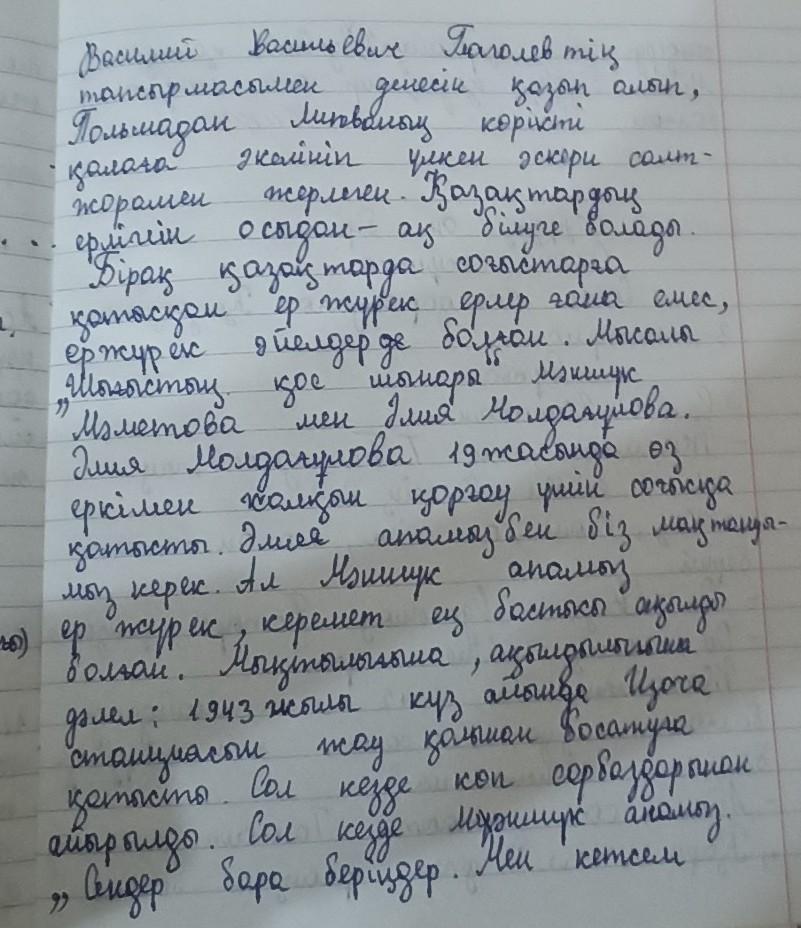 Василий Васильевич Глаголевтің
тапсырмасымен денесін қазып алып,
Польшадан Литваның көрікті
қалаға әкелініп үлкен әскери салт-
жорамен жерлеген. Қазақтардың
ерлігін осыдан-ақ білуге болады.
Бірақ қазақтарда соғыстарға
қатысқан ер жүрек ерлер ғана емес,
ержүрек әйелдерде болған. Мысалы
„Шығыстың қос шынары“ Мәншүк
Мәметова мен Әлия Молдағұлова.
Әлия Молдағұлова 19 жасында өз
еркімен халқын қорғау үшін соғысқа
қатысты. Әлия апамызбен біз мақтануы-
мыз керек. Ал Мәншүк апамыз
ер жүрек, керемет ең бастысы ақылды
болған. Мықтылығына, ақылдылығына
дәлел: 1943 жылы күз айында Изоча
станциасын жау қолынан босатуға
қатысты. Сол кезде көп сарбаздарынан
айырылды. Сол кезде Мәншүк апамыз.
„Сендер бара беріңдер. Мен кетсем